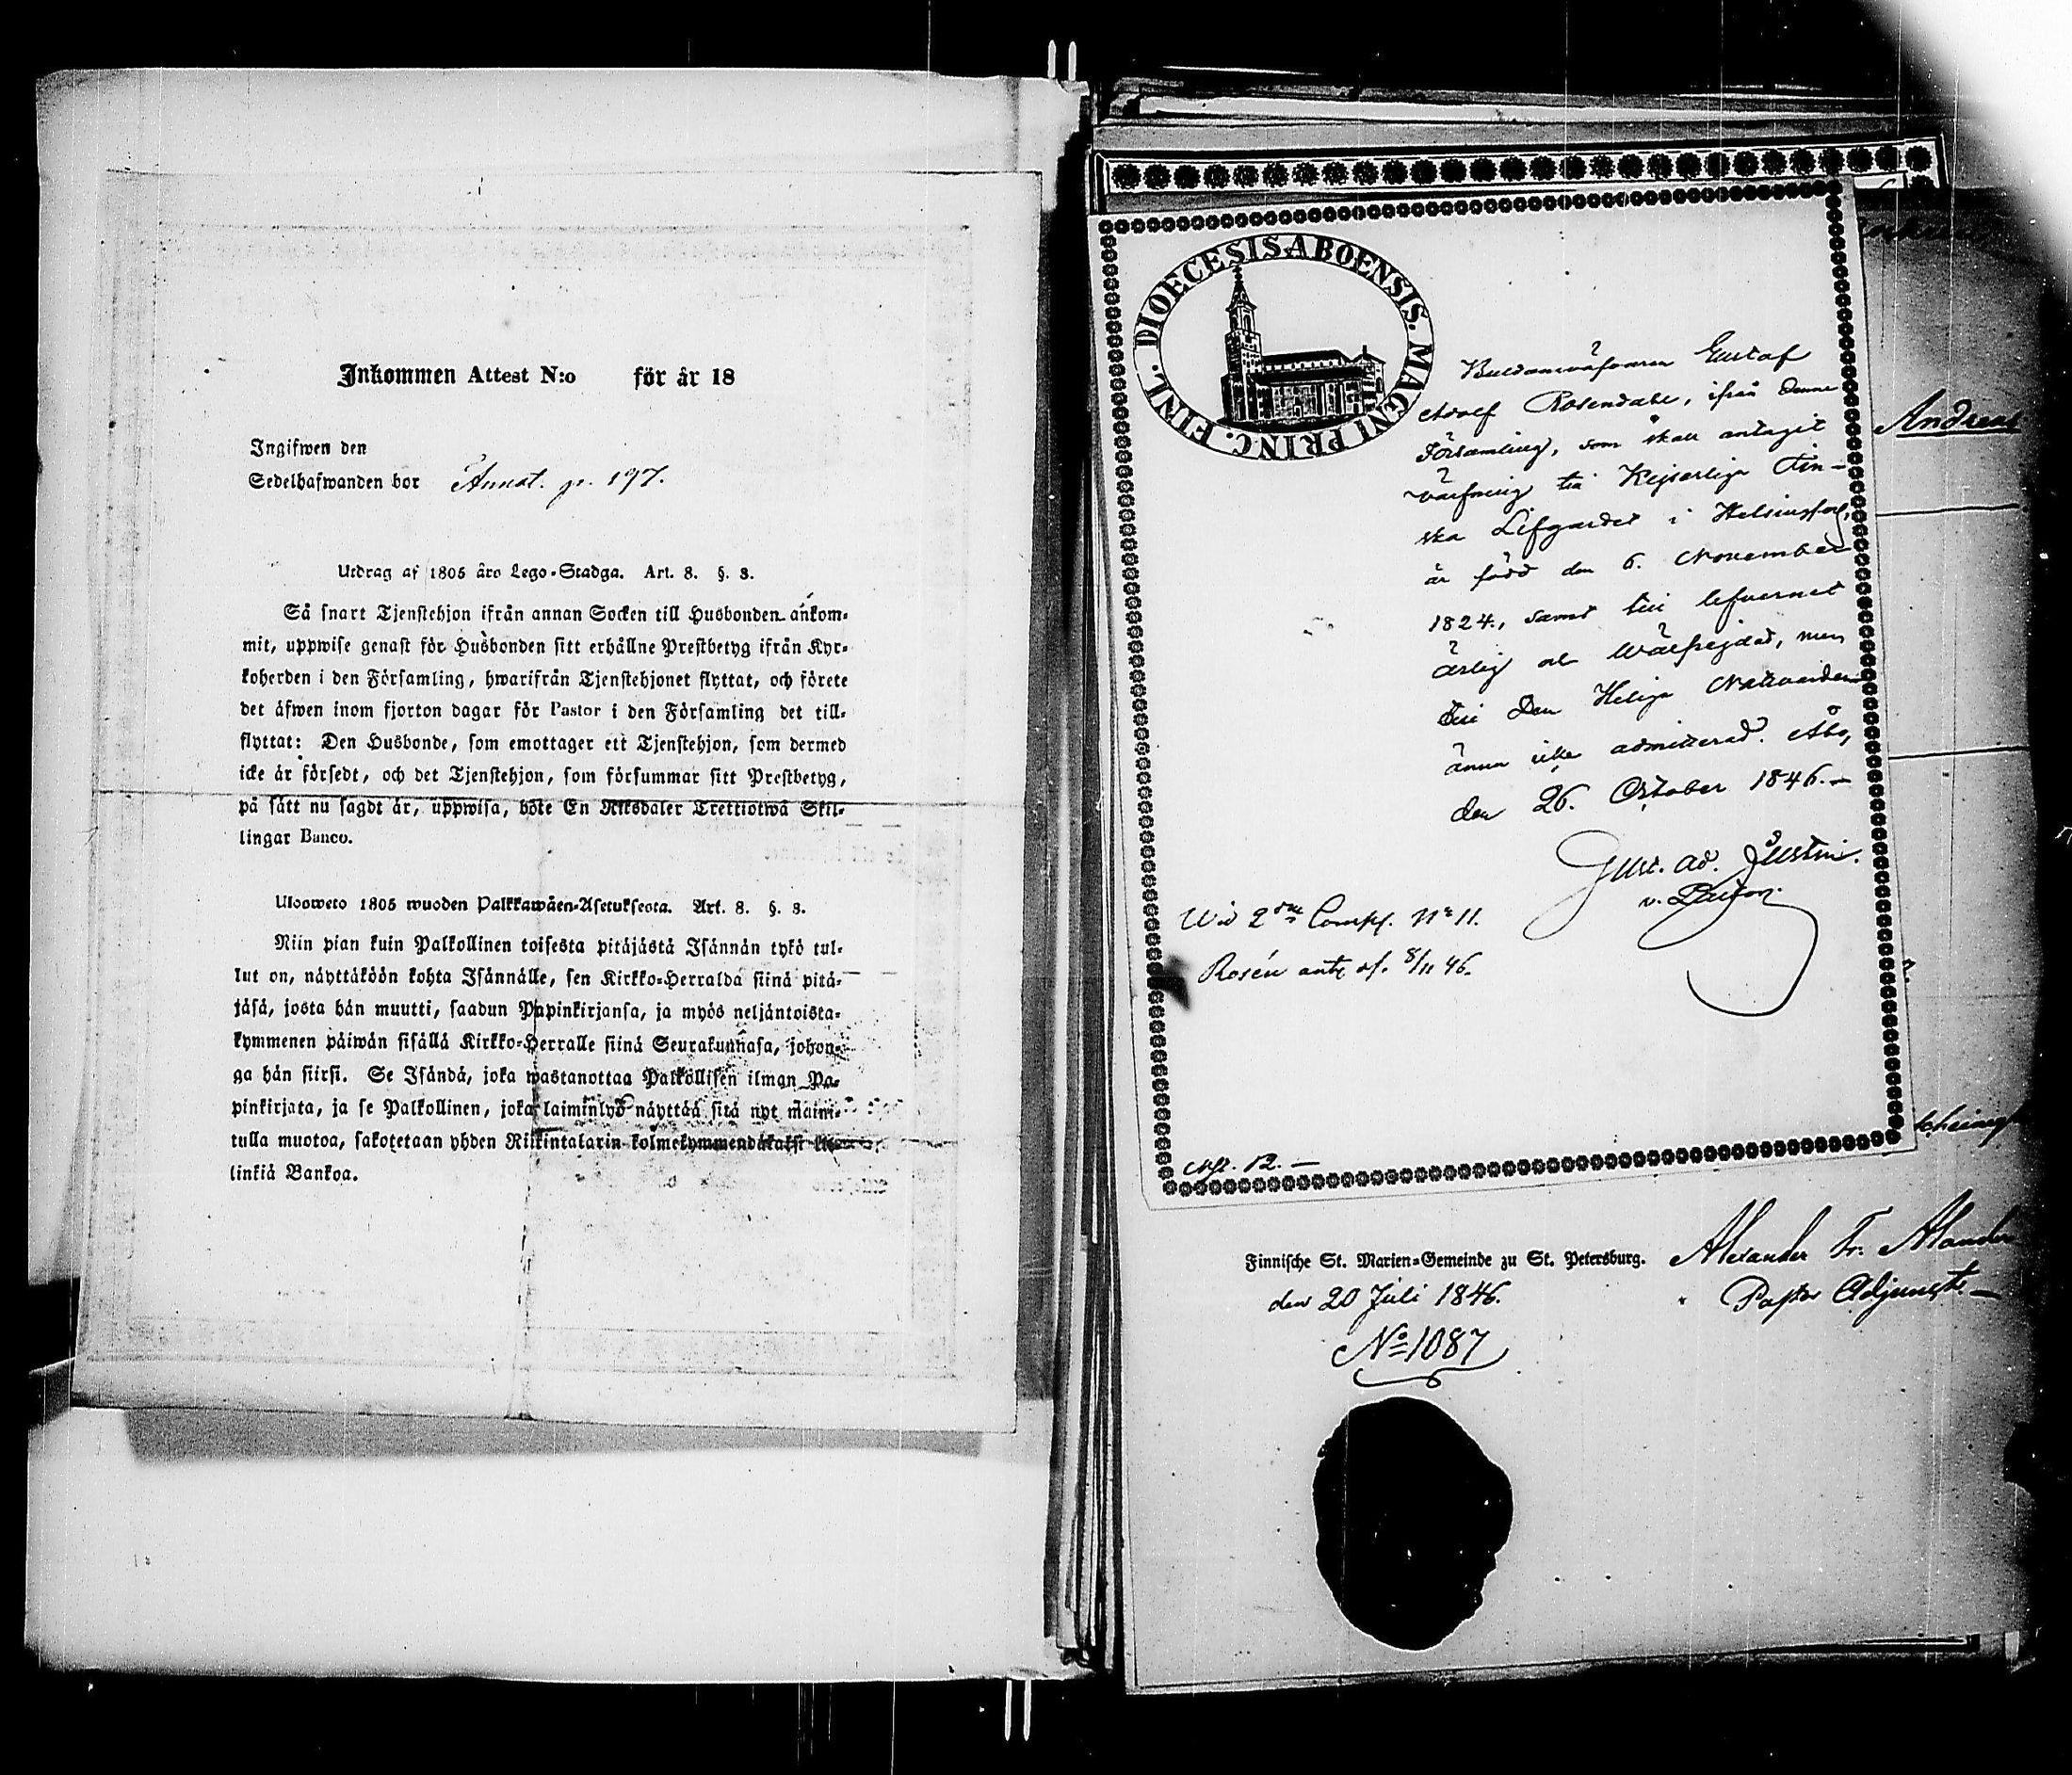 Inkommen Attest N:o för år 18
Ingifwen den
Sedelhafwanden bor Annot. p. 197.
Utdrag af 1805 års Lego-Stadga. Art. 8. §. 8.
Så snart Tjenstehjon ifrån annan Socken till Husbonden ankom-
mit, uppwise genast för Husbonden sitt erhållne Prestbetyg ifrån Kyr-
koherden i den Församling, hwarifrån Tjenstehjonet flyttat, och förete
det äfwen inom fjorton dagar för Pastor i den Församling det till-
flyttat: Den Husbonde, som emottager ett Tjenstehjon, som dermed
icke är försedt, och det Tjenstehjon, som försummar sitt Prestbetyg,
på sätt nu sagdt är, uppwisa, böte En Riksdaler Trettiotwå Skil-
lingar Banco.
Ulosweto 1805 wuoden Palkkawäen-Asetuksesta. Art. 8. §. 8.
Niin pian kuin Palkollinen toisesta pitäjästä Isännän tykö tul-
lut on, näyttäköön kohta Isännälle, sen Kirkko-Herralda siinä pitä-
jäsä, josta hän muutti, saadun Papinkirjansa, ja myös neljäntoista-
kymmenen päiwän sisällä Kirkko-Herralle siinä Seurakunnasa, johon-
ga hän siirsi. Se Isändä, joka wastanottaa Palkollisen ilman Pa-
pinkirjata, ja se Palkollinen, joka laiminlyö näyttää sitä nyt maini-
tulla muotoa, sakotetaan yhden Riikintalarin kolmekymmendäkaksi
linkiä Bankoa.
DIOECESIS ABOENSIS. MAGNI PRINC. FINL.
Gustaf
Adolf Rosendahl, ifrån denne
Församling, som skall antagit
värfning till Kejserliga Fin-
ska Lifgardet i Helsingfors,
är född den 6. November
1824, samt till lefvernet
ärlig och wälfrejdad, men
till Den Heliga Nattvarden
ännu icke admitterad. Åbo,
den 26. October 1846.—
Gust. Ad. Justin.
v. Pastor.
Wid 2dra Comp. No 11.
Rosén 8/11 46.
12.—
Andreas
Finnische St. Marien-Gemeinde zu St. Petersburg. Alexander Fr. Alander
den 20 Juli 1846. Pastor Adjunct.—
No 1087